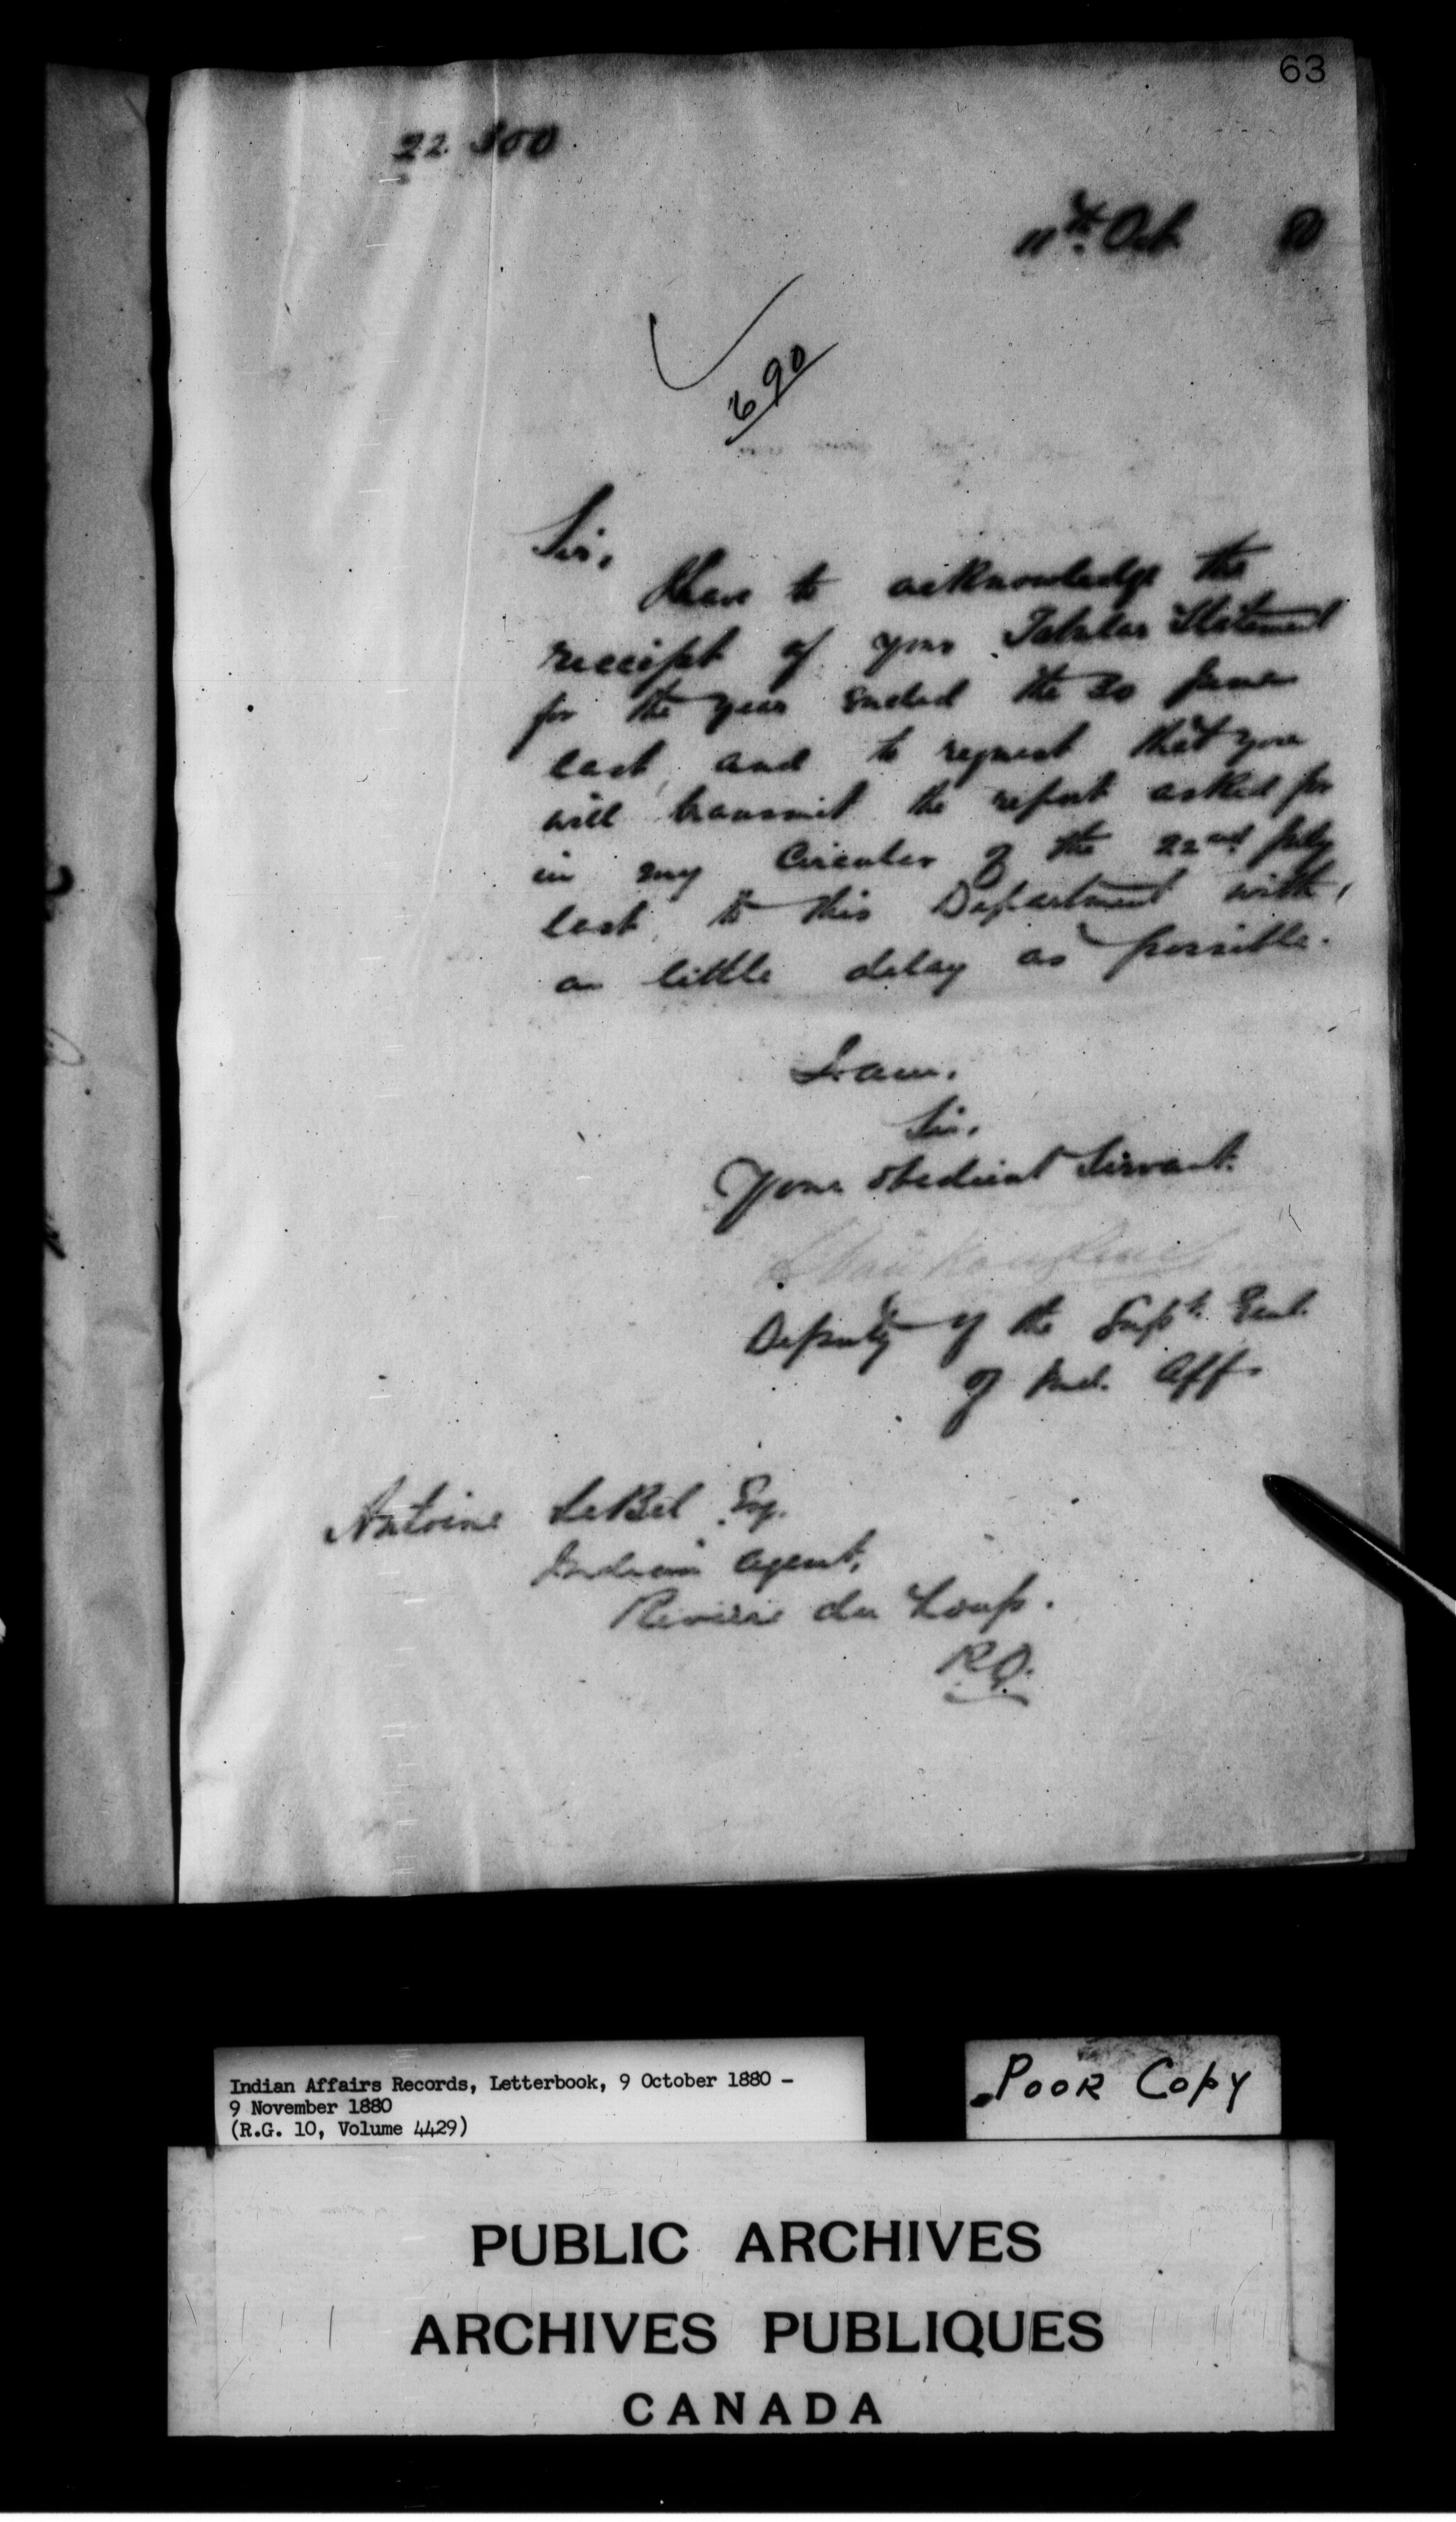 63
22.300
11th. Oct 80
690
Sir,
I have to acknowledge the
receipt of your Tabular Statement
for the year ended the 30 June
last, and to request that you
will transmit the report asked for
in my Circular of the 22nd July
last, to this Department with,
as little delay as possible.
I am,
Sir,
Your obedient Servant.
L Vankoughnet
Deputy of the Supt. Genl.
of Ind. Aff
Antoine LeBel Esq.
Indian Agent,
Riviere du Loup.
P.Q.
Indian Affairs Records, Letterbook, 9 October 1880 -
9 November 1880
(R.G. 10, Volume 4429)
POOR COPY
PUBLIC ARCHIVES
ARCHIVES PUBLIQUES
CANADA